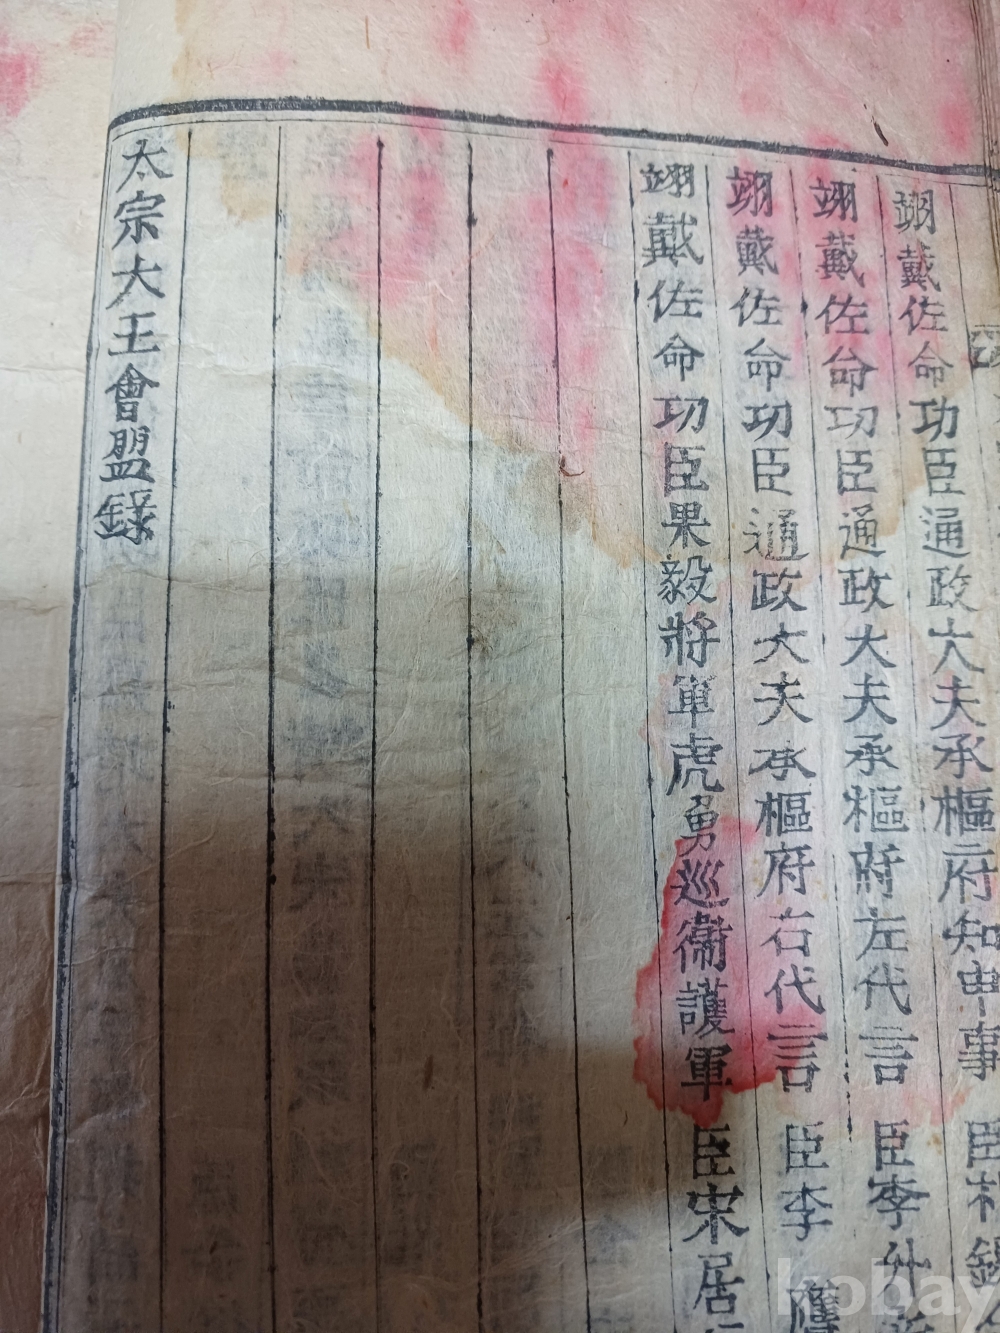 翊戴佐命功臣通政大夫承樞府知申事 臣朴錫
翊戴佐命功臣通政大夫承樞府左代言 臣李升
翊戴佐命功臣通政大夫承樞府右代言 臣李 膺
翊戴佐命功臣果毅將軍虎勇巡衛護軍 臣宋居
太宗大王會盟錄
kobay